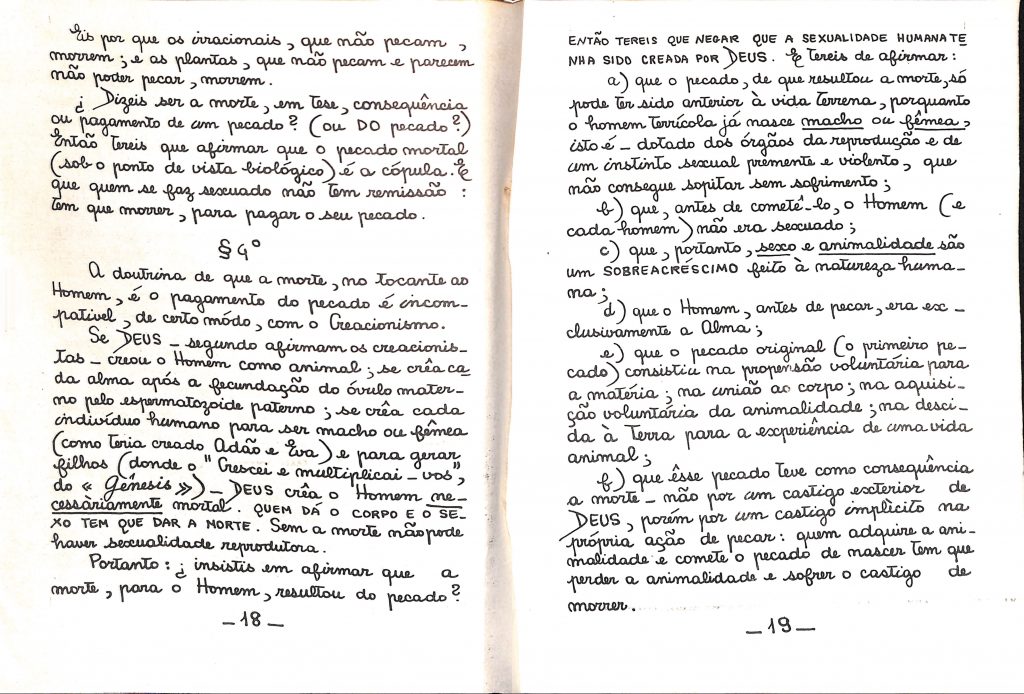 Eis por que os irracionais, que não pecam,
morrem; e as plantas, que não pecam e parecem
não poder pecar, morrem.
¿ Dizeis ser a morte, em tese, consequência
ou pagamento de um pecado? (ou DO pecado?)
Então tereis que afirmar que o pecado mortal
(sob o ponto de vista biológico) é a cópula. E
que quem se faz sexuado não tem remissão:
tem que morrer, para pagar o seu pecado.
§ 4º
A doutrina de que a morte, no tocante ao
Homem, é o pagamento do pecado é incom-
patível, de certo módo, com o Creacionismo.
Se DEUS – segundo afirmam os creacionis-
tas – creou o Homem como animal; se crêa ca
da alma após a fecundação do óvulo mater-
no pelo espermatozoide paterno; se crêa cada
indivíduo humano para ser macho ou fêmea
(como teria creado Adão e Eva) e para gerar
filhos (donde o "Crescei e multiplicai-vos",
do « Gênesis ») – DEUS crêa o Homem ne-
cessàriamente mortal. QUEM DÁ O CORPO E O SE-
XO TEM QUE DAR A MORTE. Sem a morte não pode
haver sexualidade reprodutora.
Portanto: ¿ insistis em afirmar que a
morte, para o Homem, resultou do pecado?
– 18 –
ENTÃO TEREIS QUE NEGAR QUE A SEXUALIDADE HUMANA TE
NHA SIDO CREADA POR DEUS. E tereis de afirmar:
a) que o pecado, de que resultou a morte, só
pode ter sido anterior à vida terrena, porquanto
o homem terrícola já nasce macho ou fêmea,
isto é – dotado dos órgãos da reprodução e de
um instinto sexual premente e violento, que
não consegue sopitar sem sofrimento;
b) que, antes de cometê-lo, o Homem (e
cada homem) não era sexuado;
c) que, portanto, sexo e animalidade são
um SOBREACRÉSCIMO feito à natureza huma-
na;
d) que o Homem, antes de pecar, era ex-
clusivamente a Alma;
e) que o pecado original (o primeiro pe-
cado) consistiu na propensão voluntária para
a matéria; na união ao corpo; na aquisi-
ção voluntária da animalidade; na desci-
da à Terra para a experiência de uma vida
animal;
f) que êsse pecado teve como consequência
a morte – não por um castigo exterior de
DEUS, porém por um castigo implícito na
própria ação de pecar: quem adquire a ani-
malidade e comete o pecado de nascer tem que
perder a animalidade e sofrer o castigo de
morrer.
– 19 –